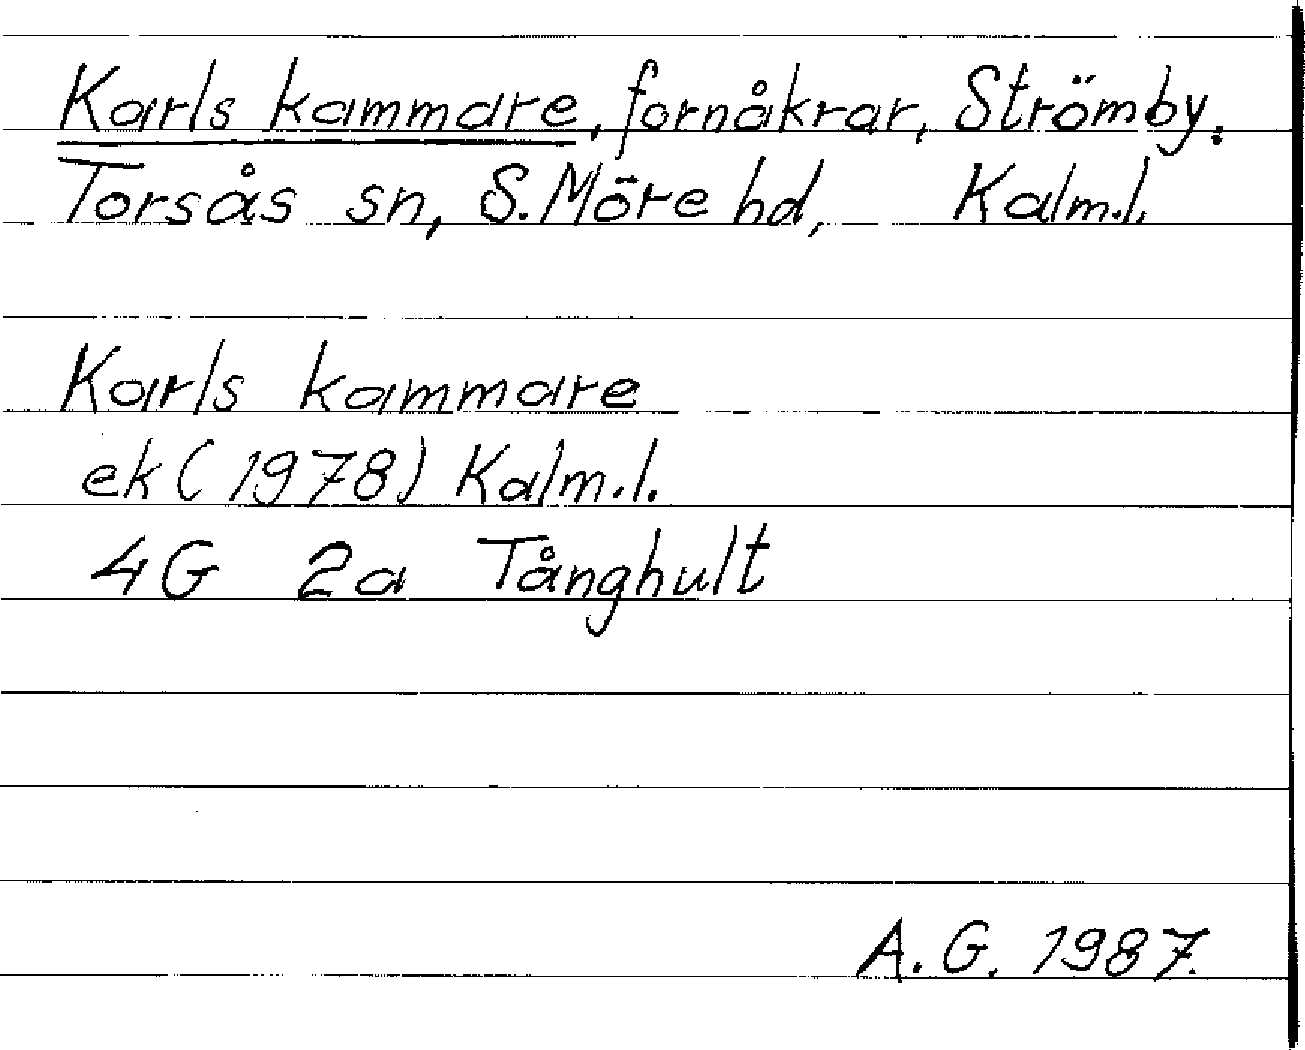 Karls kammare, fornåkrar, Strömby.
Torsås sn, S. Möre hd, Kalm.l.
Karls kammare
ek (1978) Kalm.l.
4G 2a Tånghult
A. G. 1987.